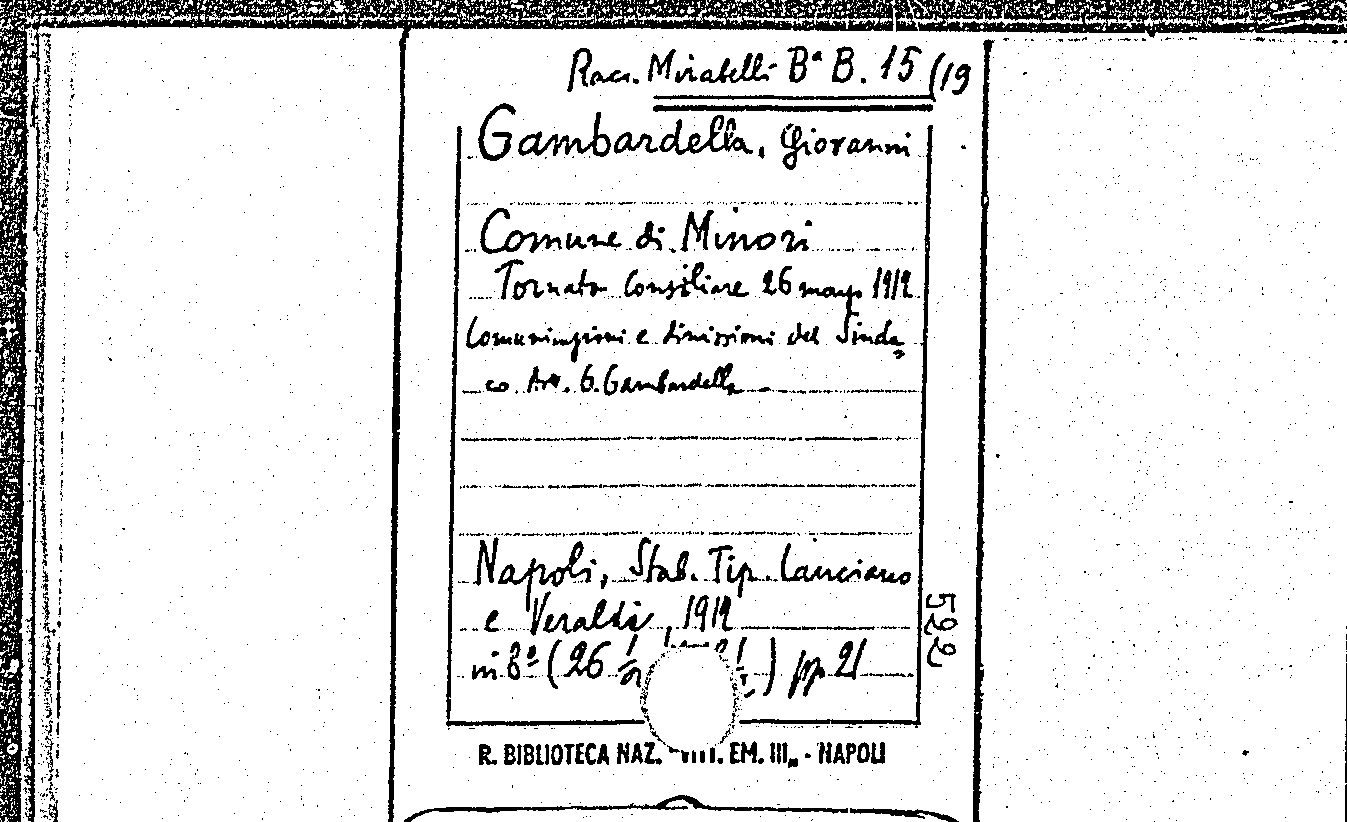 Racc. Miratelli Bª B. 15 (19
Gambardella, Giovanni
Comune di Minori
Tornata Consiliare 26 magg. 1912
Comunicazioni e dimissioni del Sinda=
co Avv. G. Gambardella
Napoli, Stab. Tip. Lanciano
e Veraldi, 1912
in 8º (26 ½ ) pp. 21
522
R. BIBLIOTECA NAZ. EM. III„ - NAPOLI